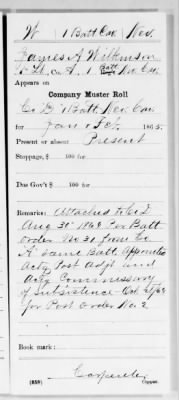 W | 1 Batt Cav. | Nev.
James A Wilkinson
Lt, Co. A, 1 Batt Nev Cav.
Appears on
Company Muster Roll
Co D, 1 Batt. Nev. Cav.
for Jan & Feb, 1865.
Present or absent Present
Stoppage, $ 100 for
Due Gov't $ 100 for
Remarks: Attached to Co D
Aug 31" 1864 Per Batt
order No 31 from Co
A Same Batt. Appointed
Actg Post Adjt and
Actg Commissary
of Subsistence Oct /64
for Post Order No. 2
Book mark:
Carpenter
(859) Copyist.